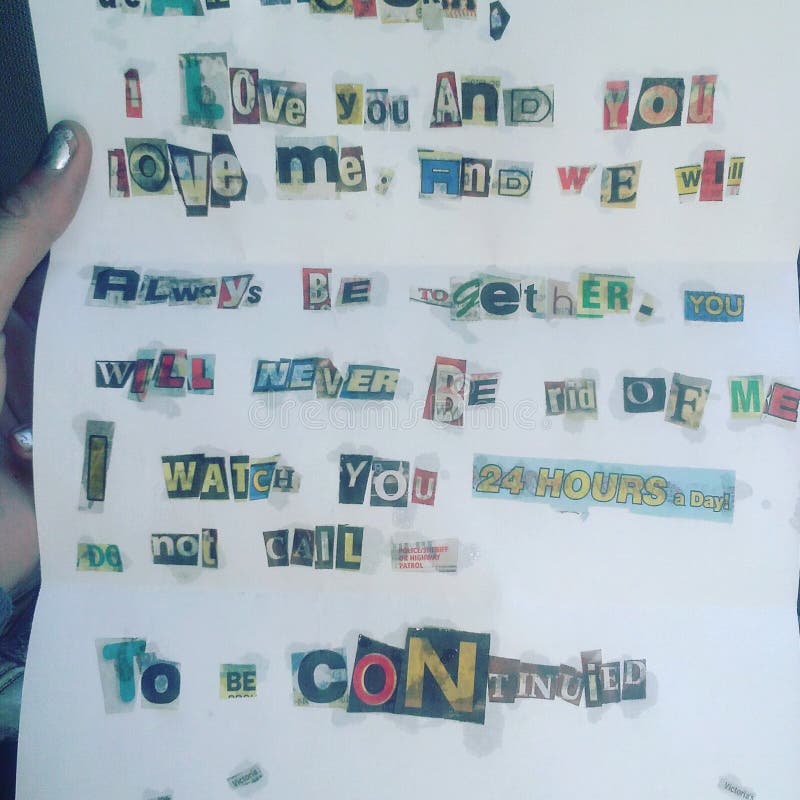 I Love you And you
Love me. And we will
Always BE TOGetHER. YOU
WILL NEVER BE rid OF ME
I WATCH YOU 24 HOURS a Day!
DO not CALL POLICE/SHERIFF OR HIGHWAY PATROL
To BE CONTINUiED
Victoria
Victoria's
dreamstime